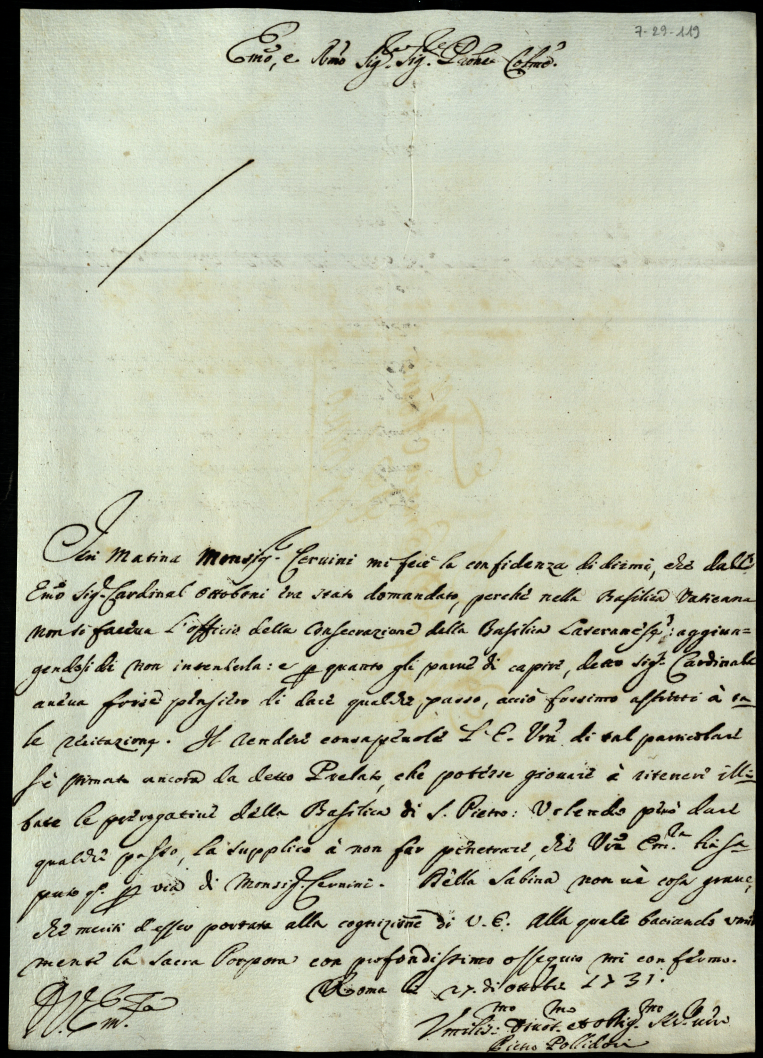 7-29-119
Emo, e Rmo Sig.re Sig.re Prone Colmo.
Ieri Matina Monsig.r Cervini mi fece la confidenza di dirmi, che dall'
Emo Sig. Cardinal Ottoboni era stato domandato, perché nella Basilica Vaticana
non si faceva l'officio della Consecrazione della Basilica Lateranese: aggiun=
gendosi di non intenderla: e p quanto gli parve di capire, detto Sig. Cardinale
aveva forse pensiero di dare qualche passo, acciò fossimo astretti à ta=
le recitazione. Il rendere consapevole l'E. Vra di tal particolare
s'è stimato ancora da detto Prelato, che potesse giovare à ritenere illi=
bate le prerogative della Basilica di S. Pietro: Volendo però dare
qualche passo, la supplico à non far penetrare, che Vra Em.za l'hà sa=
puto p via di Monsig. Cervini. Della Sabina non v'è cosa grave,
che meriti d'esser portata alla cognizione di V. E. Alla quale baciando umil
mente la Sacra Porpora con profondissimo ossequio mi confermo.
Roma li 27. di ottobre 1731.
V. Em.za
Umilis.mo Divot.mo et Oblig.mo Ser. vero
Pietro Pollidori